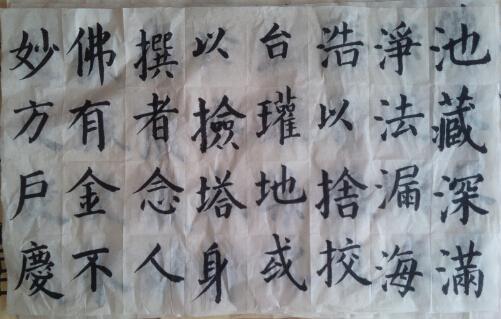 池藏深滿
淨法漏海
浩以捨挍
台瓘地或
以撿塔身
撰者念人
佛有金不
妙方戶慶